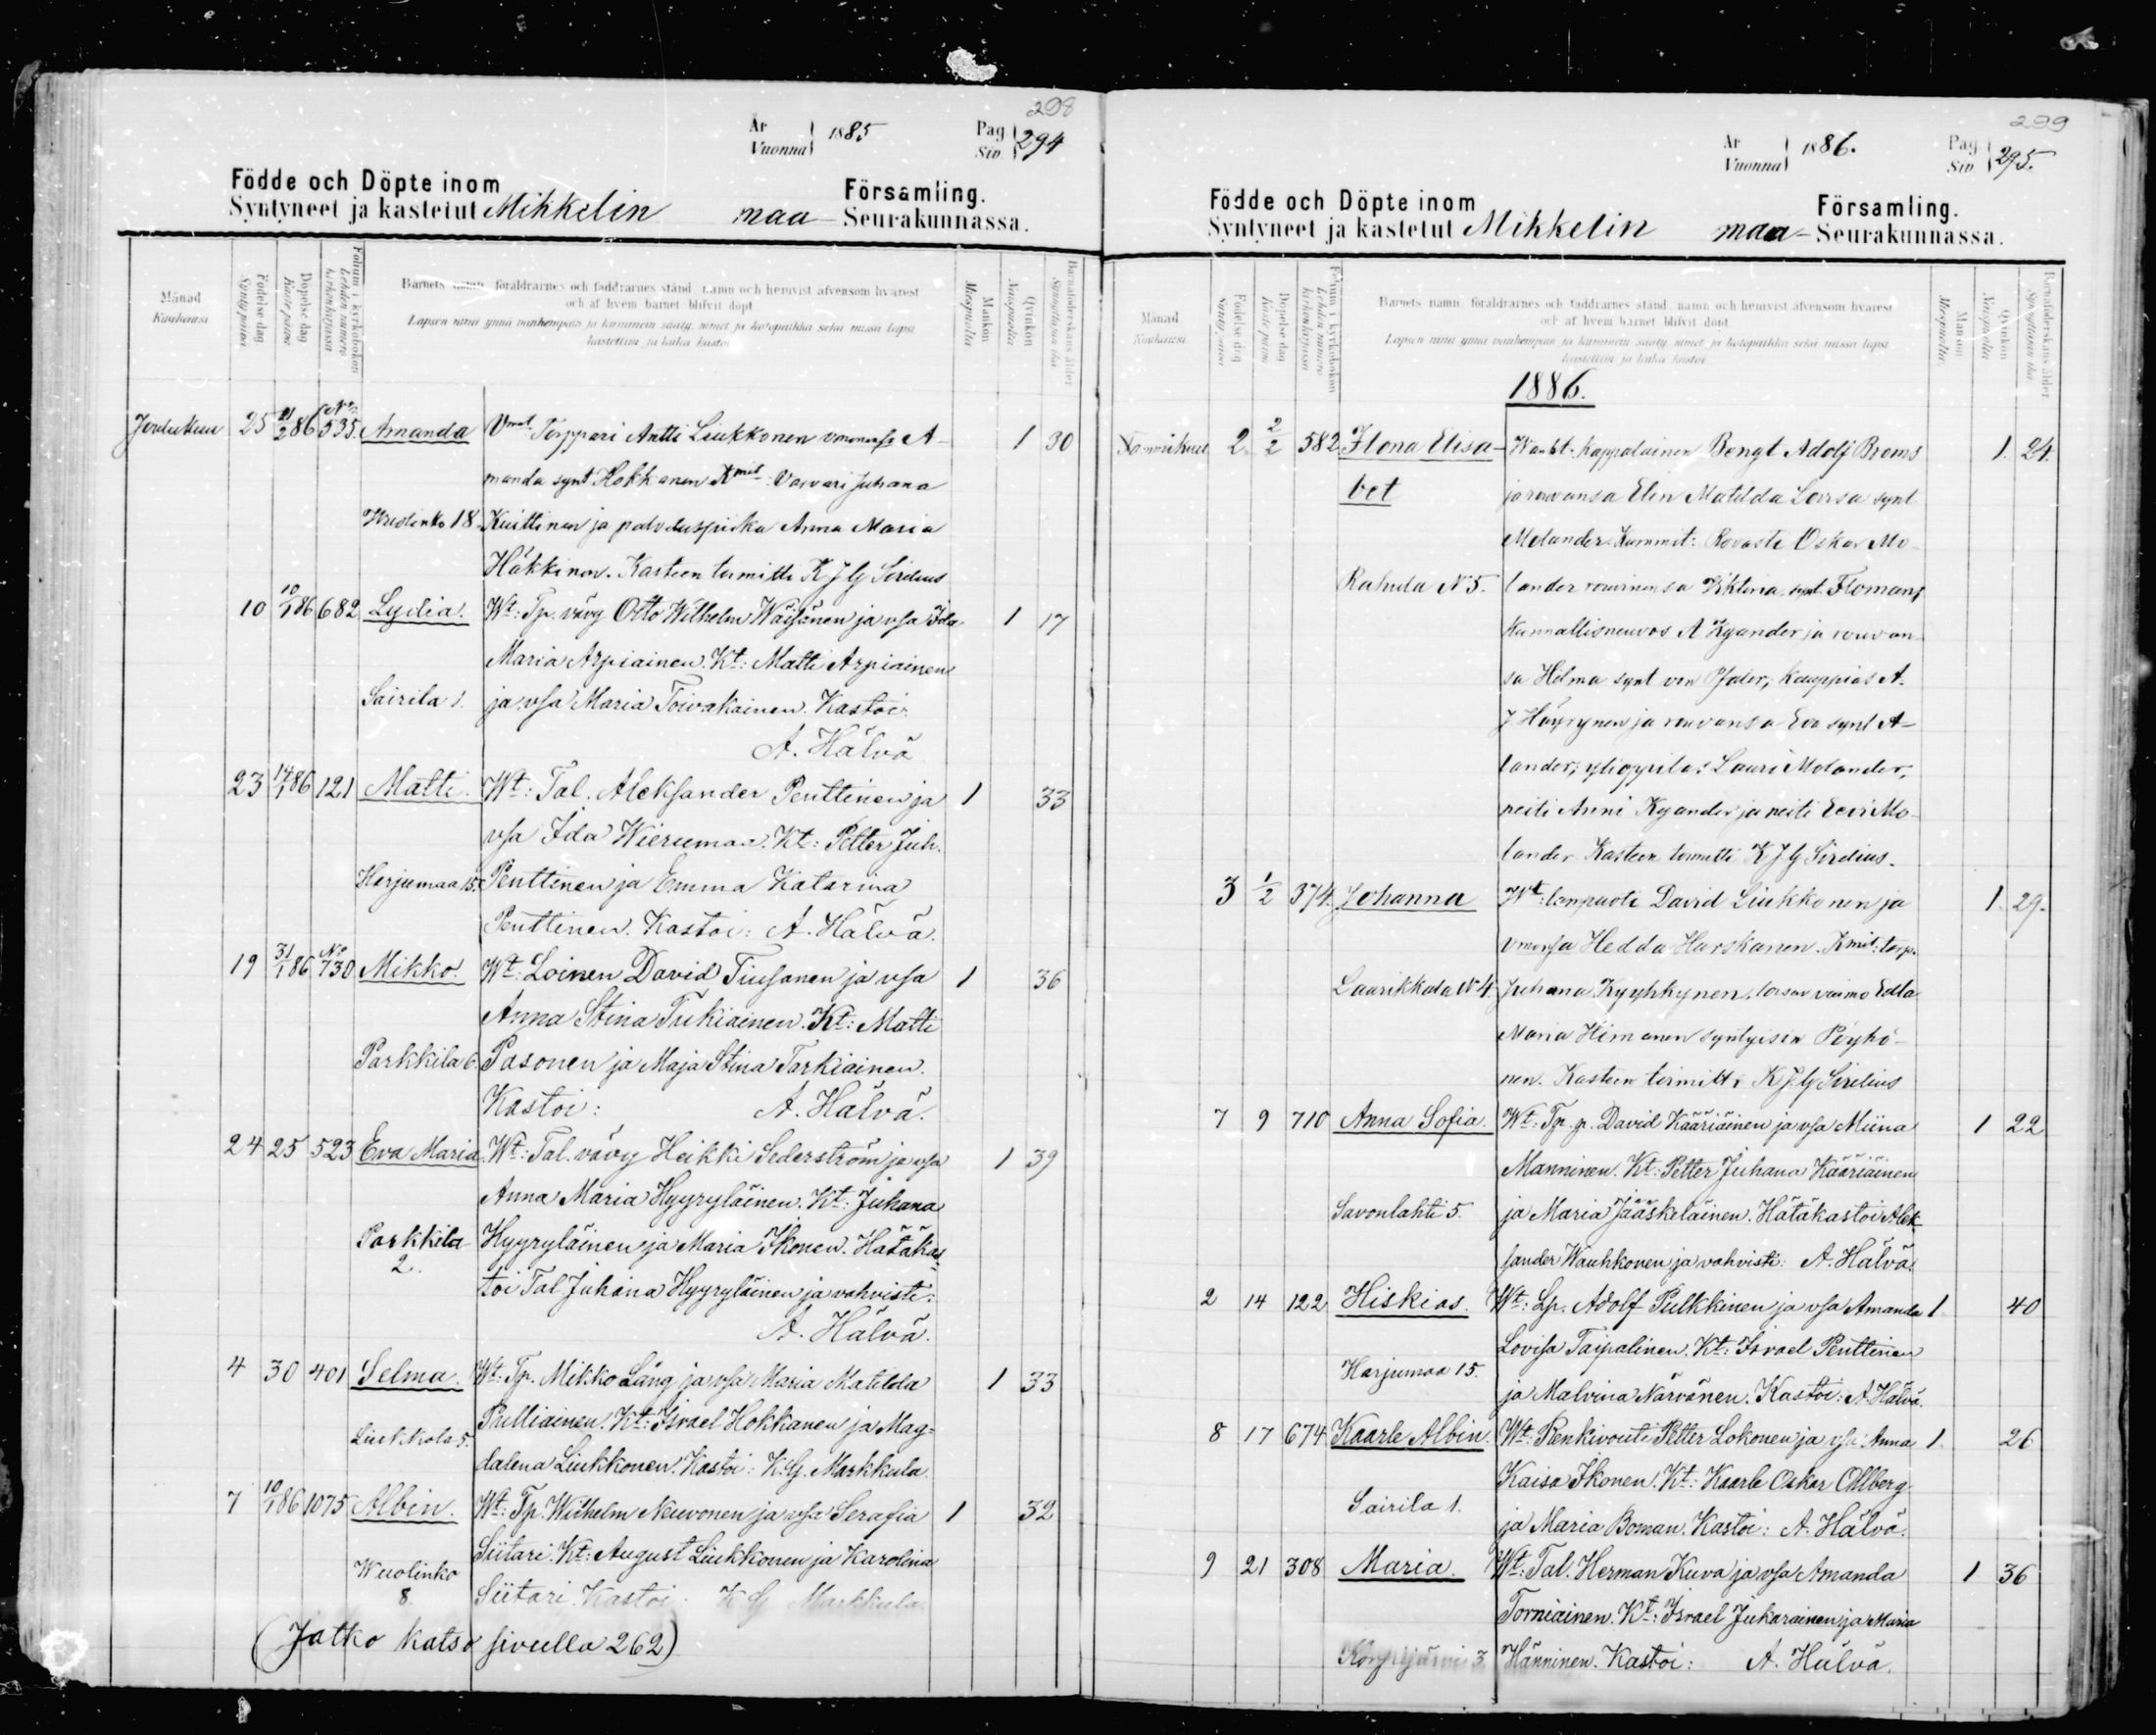 298
År
Vuonna } 1885
Pag
Siv. } 294
Födde och Döpte inom
Församling.
Syntyneet ja kastetut Mikkelin maa- Seurakunnassa.
Månad
Kuukausi
Födelse dag
Synty päivä
Döpelse dag
Kaste päivä
Folium i kyrkoboken
Lehden numero kirkonkirjassa
Barnets namn, föräldrarnes och faddrarnes stånd, namn och hemvist äfvensom hvarest
och af hvem barnet blifvit döpt
Lapsen nimi ynnä vanhempain ja kummein sääty, nimet ja kotopaikka sekä missä lapsi
kastettiin ja kuka kastoi
Mankön
Miespuolia
Qvinkön
Naispuolia
Barnaföderskans ålder
Synnyttäjän ikä
Joulukuu 25 21/2 86 No 535. Amanda Vmat Torppari Antti Liukkonen vmonsa A- 1 30
manda synt Hokkanen Kmit: Vaivari Juhana
18. Kuittinen ja palveluspiika Anna Maria
Häkkinen. Kasteen toimitti K J G Sirelius
10 10/1 86 682 Lydia. Wt: Tp. vävy Otto Wilhelm Wäisänen ja vsa Ida 1 17
Maria Arpiainen. Kt: Matti Arpiainen
Sairila 1. ja vsa Maria Toivakainen. Kastoi:
A. Hälvä
23 14/1 86 121 Matti. Wt: Tal. Aleksander Penttinen ja 1 33
vsa Ida Wierumaa. Kt: Petter Juh.
Harjumaa 15. Penttinen ja Emma Katarina
Penttinen. Kastoi: A. Hälvä.
19 31/1 86 No 730 Mikko. Wt: Loinen David Tiusanen ja vsa 1 36
Anna Stina Tukiainen. Kt: Matti
Parkkila 6. Pasonen ja Maja Stina Tarkiainen.
Kastoi: A. Hälvä.
24 25 523 Eva Maria. Wt: Tal. vävy Heikki Sederström ja vsa 1 39
Anna Maria Hyyryläinen. Kt: Juhana
Parkkila Hyyryläinen ja Maria Ikonen. Hätäkas-
2. toi Tal Juhana Hyyryläinen ja vahvisti:
A. Hälvä.
4 30 401 Selma. Wt: Tp. Mikko Läng ja vsa Maria Matilda 1 33
Pulliainen. Kt: Israel Hokkanen ja Mag-
Liukkola 5. dalena Liukkonen. Kastoi: K. G. Markkula.
7 10/1 86 1075 Albin. Wt: Tp. Wilhelm Neuvonen ja vsa Serafia 1 32
Siitari. Kt: August Liukkonen ja Karolina
Wuolinko
8. Siitari. Kastoi: K G Markkula.
(Jatko katso sivulla 262)
299
År
Vuonna } 1886.
Pag
Siv } 295.
Födde och Döpte inom
Församling.
Syntyneet ja kastetut Mikkelin maa- Seurakunnassa.
Månad
Kuukausi
Födelse dag
Synty päivä
Döpelse dag
Kaste päivä
Folium i kyrkoboken
Lehden numero kirkonkirjassa
Barnets namn, föräldrarnes och faddrarnes stånd, namn och hemvist äfvensom hvarest
och af hvem barnet blifvit döpt
Lapsen nimi ynnä vanhempain ja kummein sääty, nimet ja kotopaikka sekä missä lapsi
kastettiin ja kuka kastoi
Mankön
Miespuolia
Qvinkön
Naispuolia
Barnaföderskans ålder
Synnyttäjän ikä
1886.
Tammikuu 2 2/2 582 Ilona Elisa- Kappalainen Bengt Adolf Broms 1. 24.
bet ja rouvansa Elin Matilda Lovisa synt
Molander Kummit: Rovasti Oskar Mo-
Rahula N 5. lander rouvinensa Viktoria, synt. Floman,
Kunnallisneuvos A Kyander ja rouvan-
sa Hilma synt von Pfaler, kauppias A.
J Häyrynen ja rouvansa Eva synt A-
lander; ylioppilas Lauri Molander,
neiti Anni Kyander ja neiti Eevi Mo-
lander. Kasteen toimitti K J G Sirelius.
3 1/2 374. Johanna Wt: lampuoti David Liukkonen ja 1. 29.
vmonsa Hedda Harskanen. Kmit: torp.
Laurikkala N 4. Juhana Kyyhkynen, vaimo Edla
Maria Himanen syntyisin Pöyhö-
nen. Kasteen toimitti K J G Sirelius
7 9 710 Anna Sofia. Wt: Tp. p. David Kääriäinen ja vsa Miina 1 22
Manninen. Kt: Petter Juhana Kääriäinen
Savonlahti 5. ja Maria Jääskeläinen. Hätäkastoi Alek-
sander Wauhkonen ja vahvisti: A. Hälvä.
2 14 122 Hiskias. Wt: Lp. Adolf Pulkkinen ja vsa Amanda 1. 40
Lovisa Taipalinen. Kt: Israel Penttinen
Harjumaa 15.
ja Malvina Närvänen. Kastoi: A. Hälvä.
8 17 674 Kaarle Albin. Wt: Renkivouti Petter Lokonen ja vsa Anna 1. 26
Kaisa Ikonen. Kt: Kaarle Oskar Ohlberg
Sairila 1.
ja Maria Boman. Kastoi: A. Hälvä.
9 21 308 Maria. Wt: Tal. Herman Kuva ja vsa Amanda 1 36
Torniainen. Kt: Israel Jukarainen ja Maria
Korpijärvi 3 Hänninen. Kastoi: A. Hälvä.